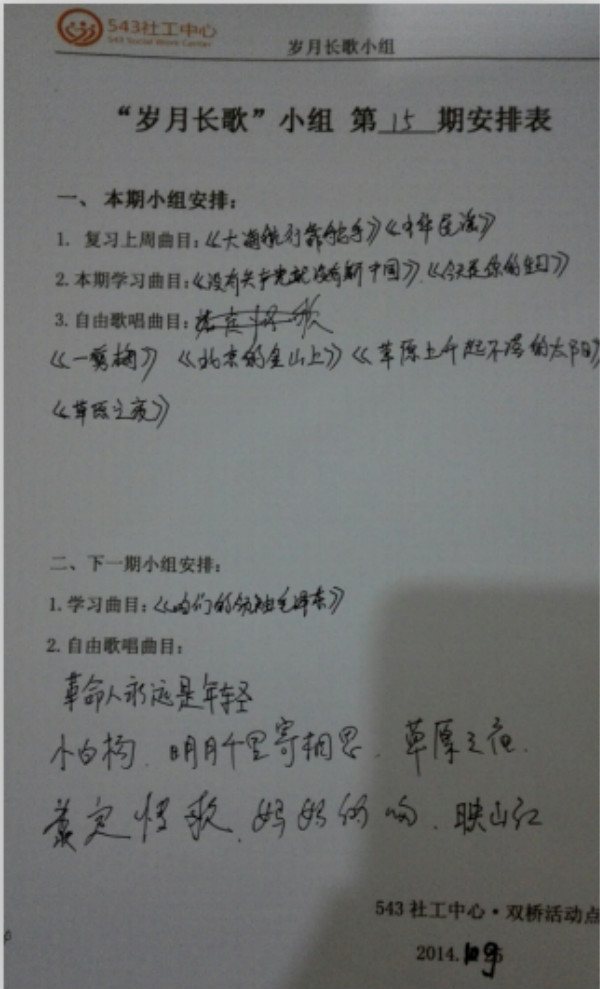 543社工中心
543 Social Work Center
岁月长歌小组
“岁月长歌”小组 第 15 期安排表
一、本期小组安排：
1. 复习上周曲目：《大海航行靠舵手》《中华民谣》
2. 本期学习曲目：《没有共产党就没有新中国》、《今天是你的生日》
3. 自由歌唱曲目：
《一剪梅》 《北京的金山上》《草原上升起不落的太阳》
《草原之夜》
二、下一期小组安排：
1. 学习曲目：《咱们的领袖毛泽东》
2. 自由歌唱曲目：
革命人永远是年轻
小白杨、明月千里寄相思、草原之夜、
康定情歌、妈妈的吻、映山红
543 社工中心·双桥活动点
2014.